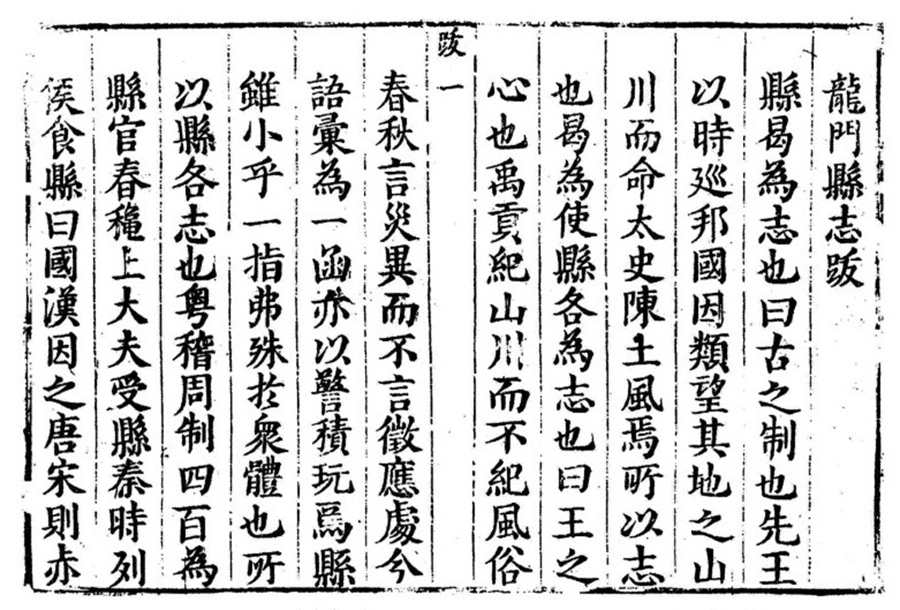 龍門縣志跋
縣曷為志也曰古之制也先王
以時廵邦國因類望其地之山
川而命太史陳土風焉所以志
也曷為使縣各為志也曰王之
心也禹貢紀山川而不紀風俗
跋 一
春秋言災異而不言徵應處今
語彙為一函亦以警積玩焉縣
雖小乎一指弗殊於衆體也所
以縣各志也粤稽周制四百為
縣官春穐上大夫受縣秦時列
侯食縣曰國漢因之唐宋則赤